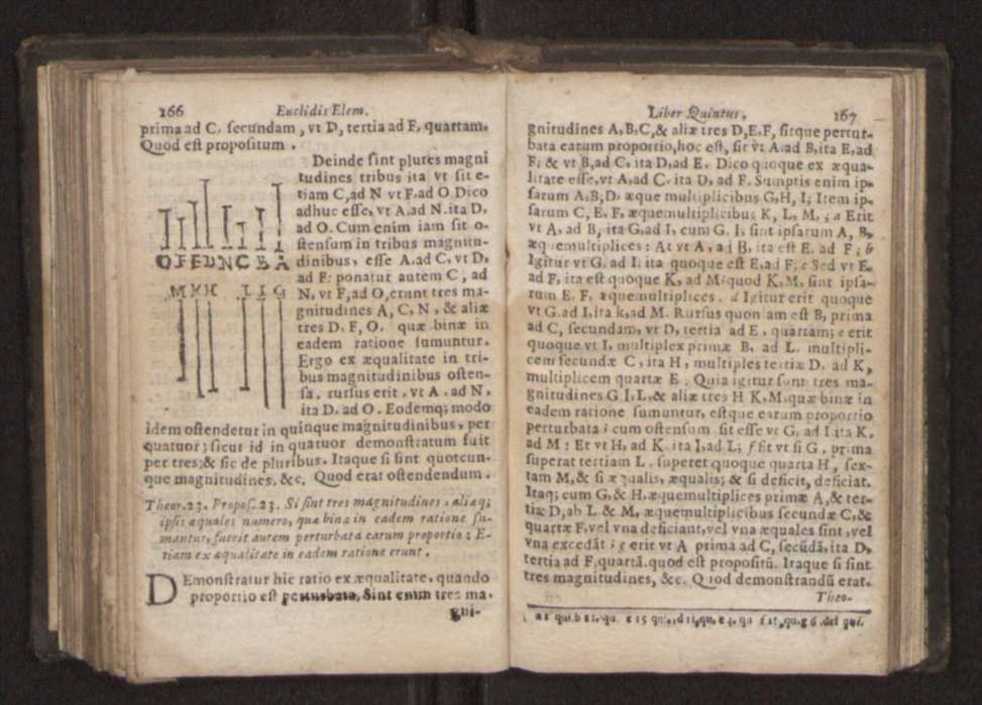 166 Euclidis Elem.
prima ad C. secundam, vt D, tertia ad F, quartam.
Quod est propositum.
Deinde sint plures magni
tudines tribus ita vt sit e-
tiam C, ad N vt F. ad O Dico
adhuc esse, vt A. ad N. ita D,
ad O. Cum enim iam sit o-
stensum in tribus magnitu-
dinibus, esse A. ad C. vt D,
ad F: ponatur autem C, ad
N, vt F, ad O, erunt tres ma-
gnitudines A, C, N, & aliæ
tres D. F, O. quæ binæ in
eadem ratione sumuntur.
Ergo ex æqualitate in tri-
bus magnitudinibus osten-
sa. rursus erit. vt A. ad N,
ita D. ad O. Eodemq; modo
O F E D N C B A
M K H L I G
idem ostendetur in quinque magnitudinibus, per
quatuor; sicut id in quatuor demonstratum fuit
per tres; & sic de pluribus. Itaque si sint quotcun-
que magnitudines, &c. Quod erat ostendendum.
Theor. 23. Propos. 23. Si sint tres magnitudines, aliæq;
ipsis æquales numero, quæ binæ in eadem ratione su-
mantur, fuerit autem perturbata earum proportio: E-
tiam ex æqualitate in eadem ratione erunt.
DEmonstratur hic ratio ex æqualitate, quando
proportio est perturbata, Sint enim tres ma-
gni-
Liber Quintus. 167
gnitudines A, B, C, & aliæ tres D, E, F, sitque pertur-
bata earum proportio, hoc est, sit vt A. ad B, ita E, ad
F; & vt B, ad C. ita D, ad E. Dico quoque ex æqua-
litate esse, vt A, ad C. ita D, ad F. Sumptis enim ip-
sarum A, B, D. æque multiplicibus G, H, I; Item ip-
sarum C, E, F, æquemultiplicibus K, L, M, ; a Erit
vt A, ad B, ita G, ad I, cum G. I, sint ipsarum A, B,
æquemultiplices: At vt A, ad B, ita est E. ad F; b
Igitur vt G. ad I. ita quoque est E, ad F; c Sed vt E.
ad F, ita est quoque K, ad M; quod K, M, sint ipsa-
rum E. F, æquemultiplices. d Igitur erit quoque
vt G. ad I, ita k, ad M. Rursus quoniam est B, prima
ad C, secundam, vt D, tertia ad E, quartam; e erit
quoque vt I, multiplex primæ B, ad L. multipli-
cem secundæ C, ita H, multiplex tertiæ D. ad K,
multiplicem quartæ E. Quia igitur sunt tres ma-
gnitudines G I, L, & aliæ tres H K, M, quæ binæ in
eadem ratione sumuntur, estque earum proportio
perturbata; cum ostensum sit esse vt G, ad I. ita K,
ad M: Et vt H, ad K. ita I, ad L; f sit vt si G, prima
superat tertiam L, superet quoque quarta H, sex-
tam M, & si æqualis, æqualis; & si deficit, deficiat.
Itaq; cum G, & H, æquemultiplices primæ A, & ter-
tiæ D, ab L. & M, æquemultiplicibus secundæ C, &
quartæ F, vel vna deficiant, vel vna æquales sint, vel
vna excedāt; g erit vt A prima ad C, secūdā, ita D,
tertia ad F, quartā. quod est propositū. Itaque si sint
tres magnitudines, &c. Quod demonstrandū erat.
Theo-
a 15 qui. b 11. qu. c 15 qui. d 11. qu. e 4. qu f 21. qu. g 6 def qui.